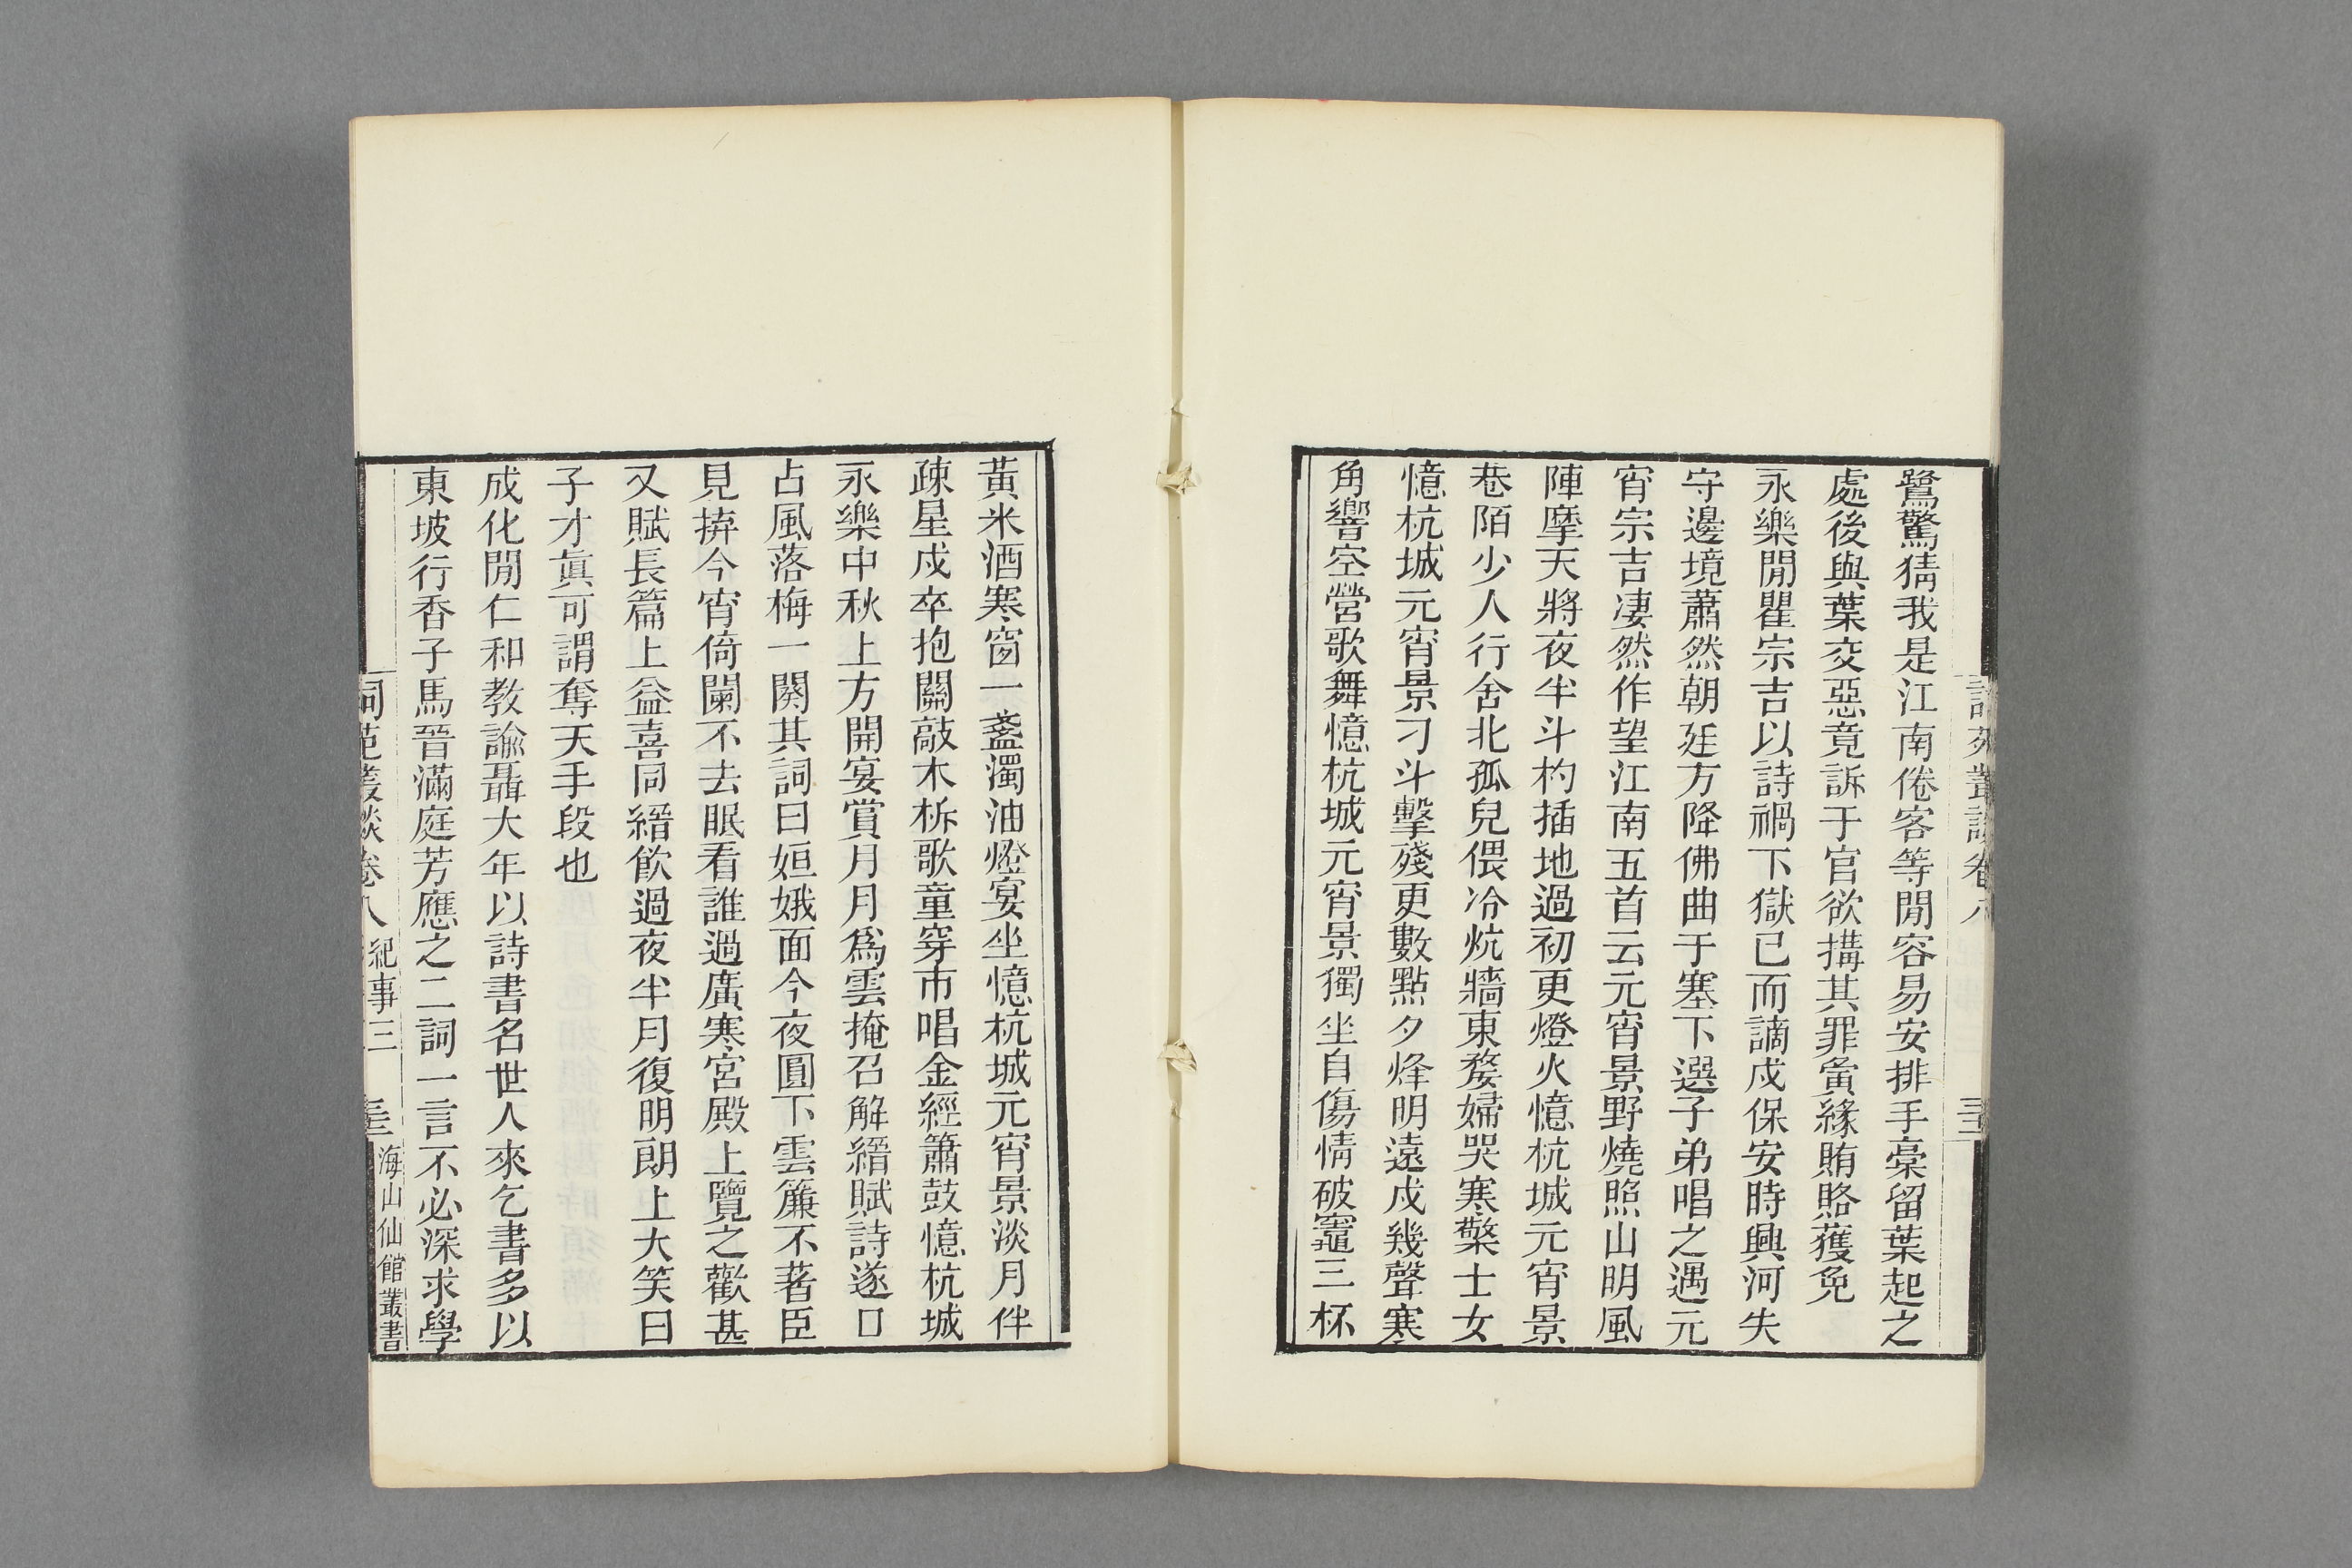 鷺驚猜我是江南倦客等閒容易安排手稾留葉起之
處後與葉交惡竟訴于官欲搆其罪夤緣賄賂獲免
永樂閒瞿宗吉以詩禍下獄已而謫戍保安時興河失
守邊境蕭然朝廷方降佛曲于塞下選子弟唱之遇元
宵宗吉淒然作望江南五首云元宵景野燒照山明風
陣摩天將夜半斗杓插地過初更燈火憶杭城元宵景
巷陌少人行舍北孤兒偎冷炕牆東嫠婦哭寒檠士女
憶杭城元宵景刁斗擊殘更數點夕烽明遠戍幾聲寒
角響空營歌舞憶杭城元宵景獨坐自傷情破竈三杯
黃米酒寒窗一盞濁油燈宴坐憶杭城元宵景淡月伴
疎星戍卒抱關敲木柝歌童穿市唱金經簫鼓憶杭城
永樂中秋上方開宴賞月月爲雲掩召解縉賦詩遂口
占風落梅一闋其詞曰姮娥面今夜圓下雲簾不著臣
見拚今宵倚闌不去眠看誰過廣寒宮殿上覽之歡甚
又賦長篇上益喜同縉飮過夜半月復明朗上大笑曰
子才眞可謂奪天手段也
成化閒仁和教諭聶大年以詩書名世人來乞書多以
東坡行香子馬晉滿庭芳應之二詞一言不必深求學
詞苑叢談卷八 紀事三 海山仙館叢書